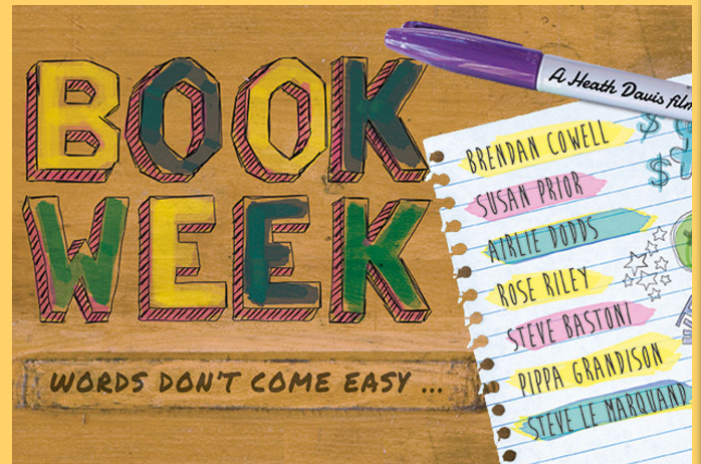 BOOK
WEEK
WORDS DON'T COME EASY ...
A Heath Davis film
BRENDAN COWELL
SUSAN PRIOR
AIRLIE DODDS
ROSE RILEY
STEVE BASTONI
PIPPA GRANDISON
STEVE LE MARQUAND
$
$